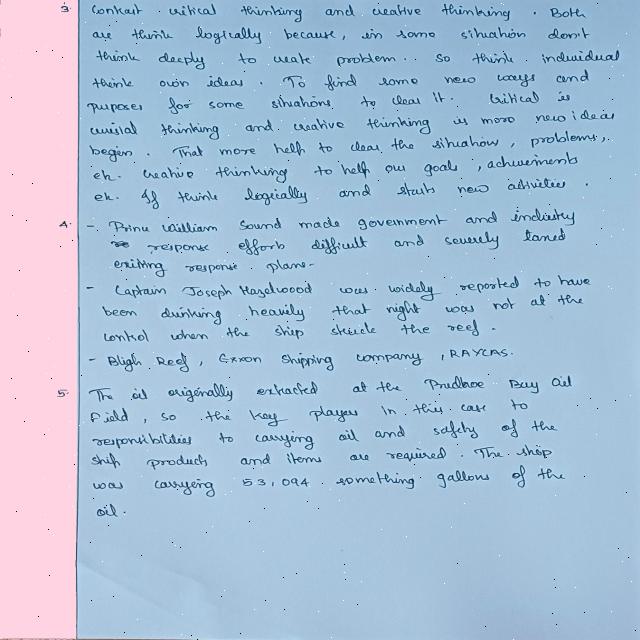 3. Contrast. critical thinking and creative thinking. Both
are think logically because, in some situation don't
think deeply to create problem.. so think individual
think own ideas. To find some new ways and
purposes for some situations, to clear it. Critical is
crucial thinking and creative thinking is more new ideas
begin. That more help to clear the situation, problems,.
etc. Creative thinking to help our goals, achievements
etc. If think logically and starts new activities.
4. - Prince William Sound made government and industry
response efforts difficult and severely taxed
existing response plans-
- Captain Joseph Hazelwood was widely reported to have
been drinking heavily that night was not at the
control when the ship struck the reef.
- Bligh Reef, Exxon Shipping company, RAYCAS.
5. The oil originally extracted at the Prudhoe Bay Oil
Field, so the key players in this case to
responsibilities to carrying oil and safety of the
ship products and items are required. The ship
was carrying 53,094 something gallons of the
oil.